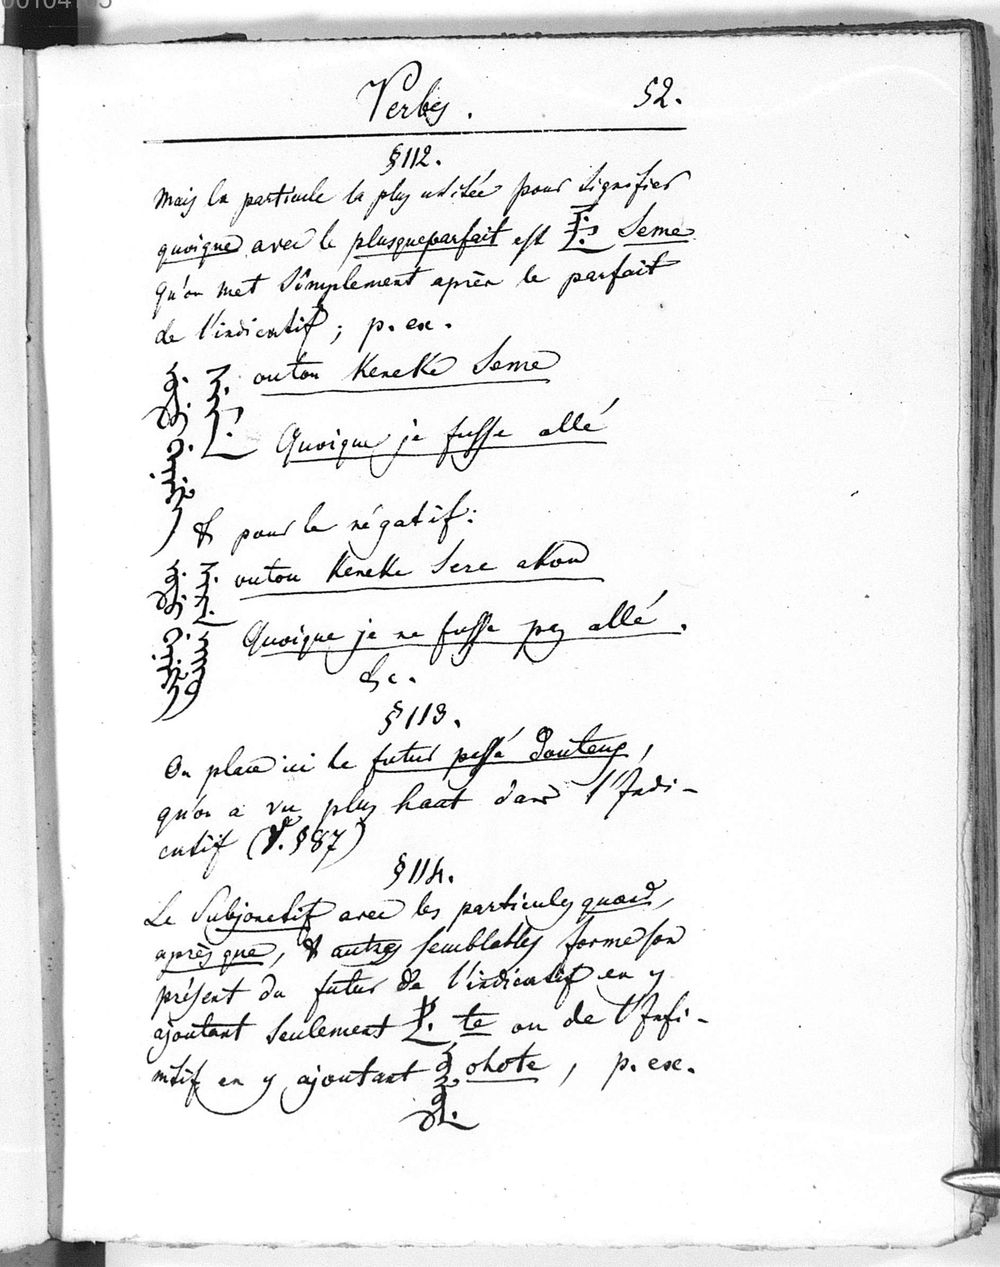 00104105
Verbes. 52.
§ 112.
Mais la particule la plus usitée pour signifier
quoique avec le plusqueparfait est Seme
qu'on met simplement après le parfait
de l'indicatif; p. ex.
outou Keneke Seme
Quoique je fusse allé
& pour le négatif:
outou Keneke Sere akou
Quoique je ne fusse pas allé.
&c.
§ 113.
On place ici le futur passé douteux,
qu'on a vu plus haut dans l'Indi-
catif (V. § 87)
§ 114.
Le Subjonctif avec les particules quand,
après que, & autres semblables forme son
présent du futur de l'indicatif en y
ajoutant seulement te ou de l'Infi-
nitif en y ajoutant ohote, p. ex.